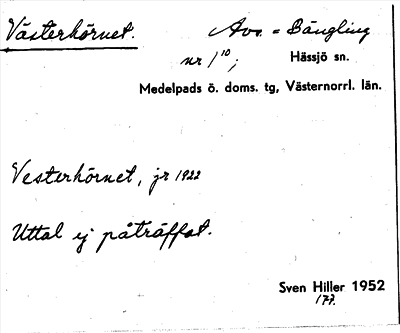 Västerhörnet. Avs. = Bängling
nr 1¹⁰; Hässjö sn.
Medelpads ö. doms. tg, Västernorrl. län.
Vesterhörnet, jr 1922
Uttal ej påträffat.
Sven Hiller 1952
177.